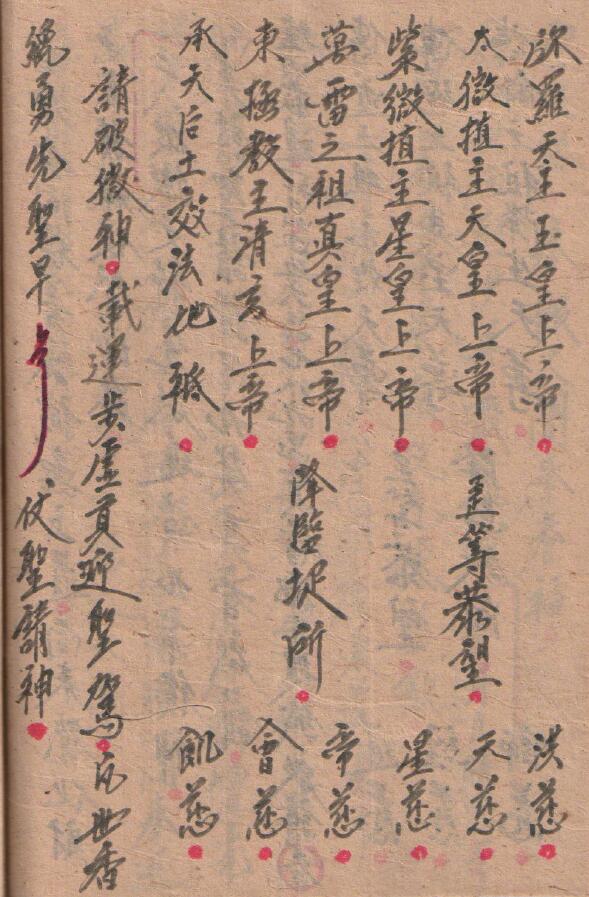 弥羅天主玉皇上帝
太微植主天皇上帝
紫微植主星皇上帝
萬雷之祖真皇上帝
東極教主清玄上帝
承天后土效法地
臣等恭望
降臨坛所
洪慈
天慈
星慈
帝慈
會慈
飢慈
請破微神 載運步虛員迎聖駕 凡世香
勇先聖早 仗聖請神